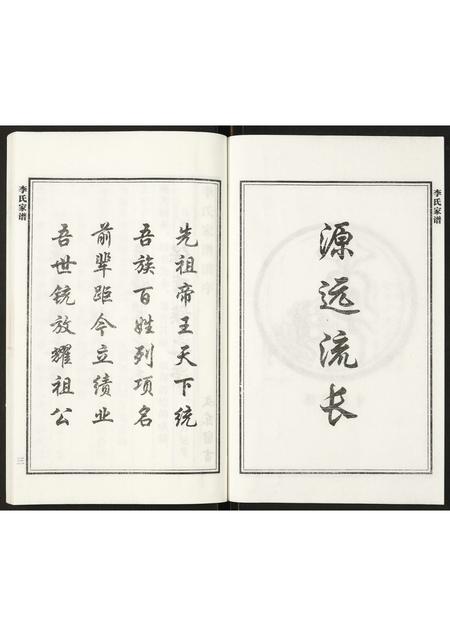 李氏家谱
源远流长
先祖帝王天下统
吾族百姓列项名
前辈距今立绩业
吾世铳放耀祖公
李氏家谱
三